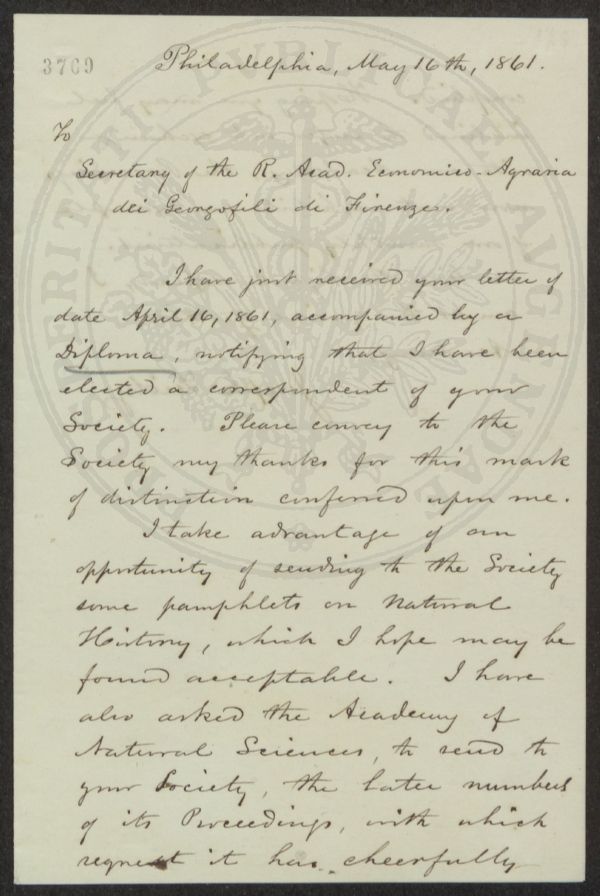 3769
Philadelphia, May 16th, 1861.
To
Secretary of the R. Acad. Economico-Agraria
dei Georgofili di Firenze.
I have just received your letter of
date April 16, 1861, accompanied by a
Diploma, notifying that I have been
elected a correspondent of your
Society. Please convey to the
Society my thanks for this mark
of distinction conferred upon me.
I take advantage of an
opportunity of sending to the Society
some pamphlets on Natural
History, which I hope may be
found acceptable. I have
also asked the Academy of
Natural Sciences, to send to
your Society, the later numbers
of its Proceedings, with which
request it has cheerfully